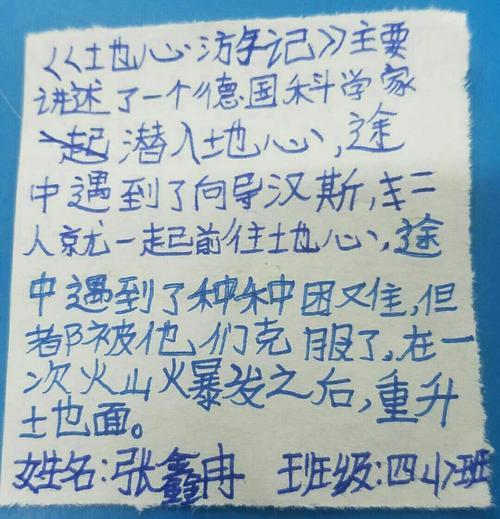 《地心游记》主要
讲述了一个德国科学家
一起潜入地心,途
中遇到了向导汉斯,二
人就一起前往地心,途
中遇到了种种困难,但
都被他们克服了,在一
次火山火暴发之后,重升
地面。
姓名:张鑫冉 班级:四4班